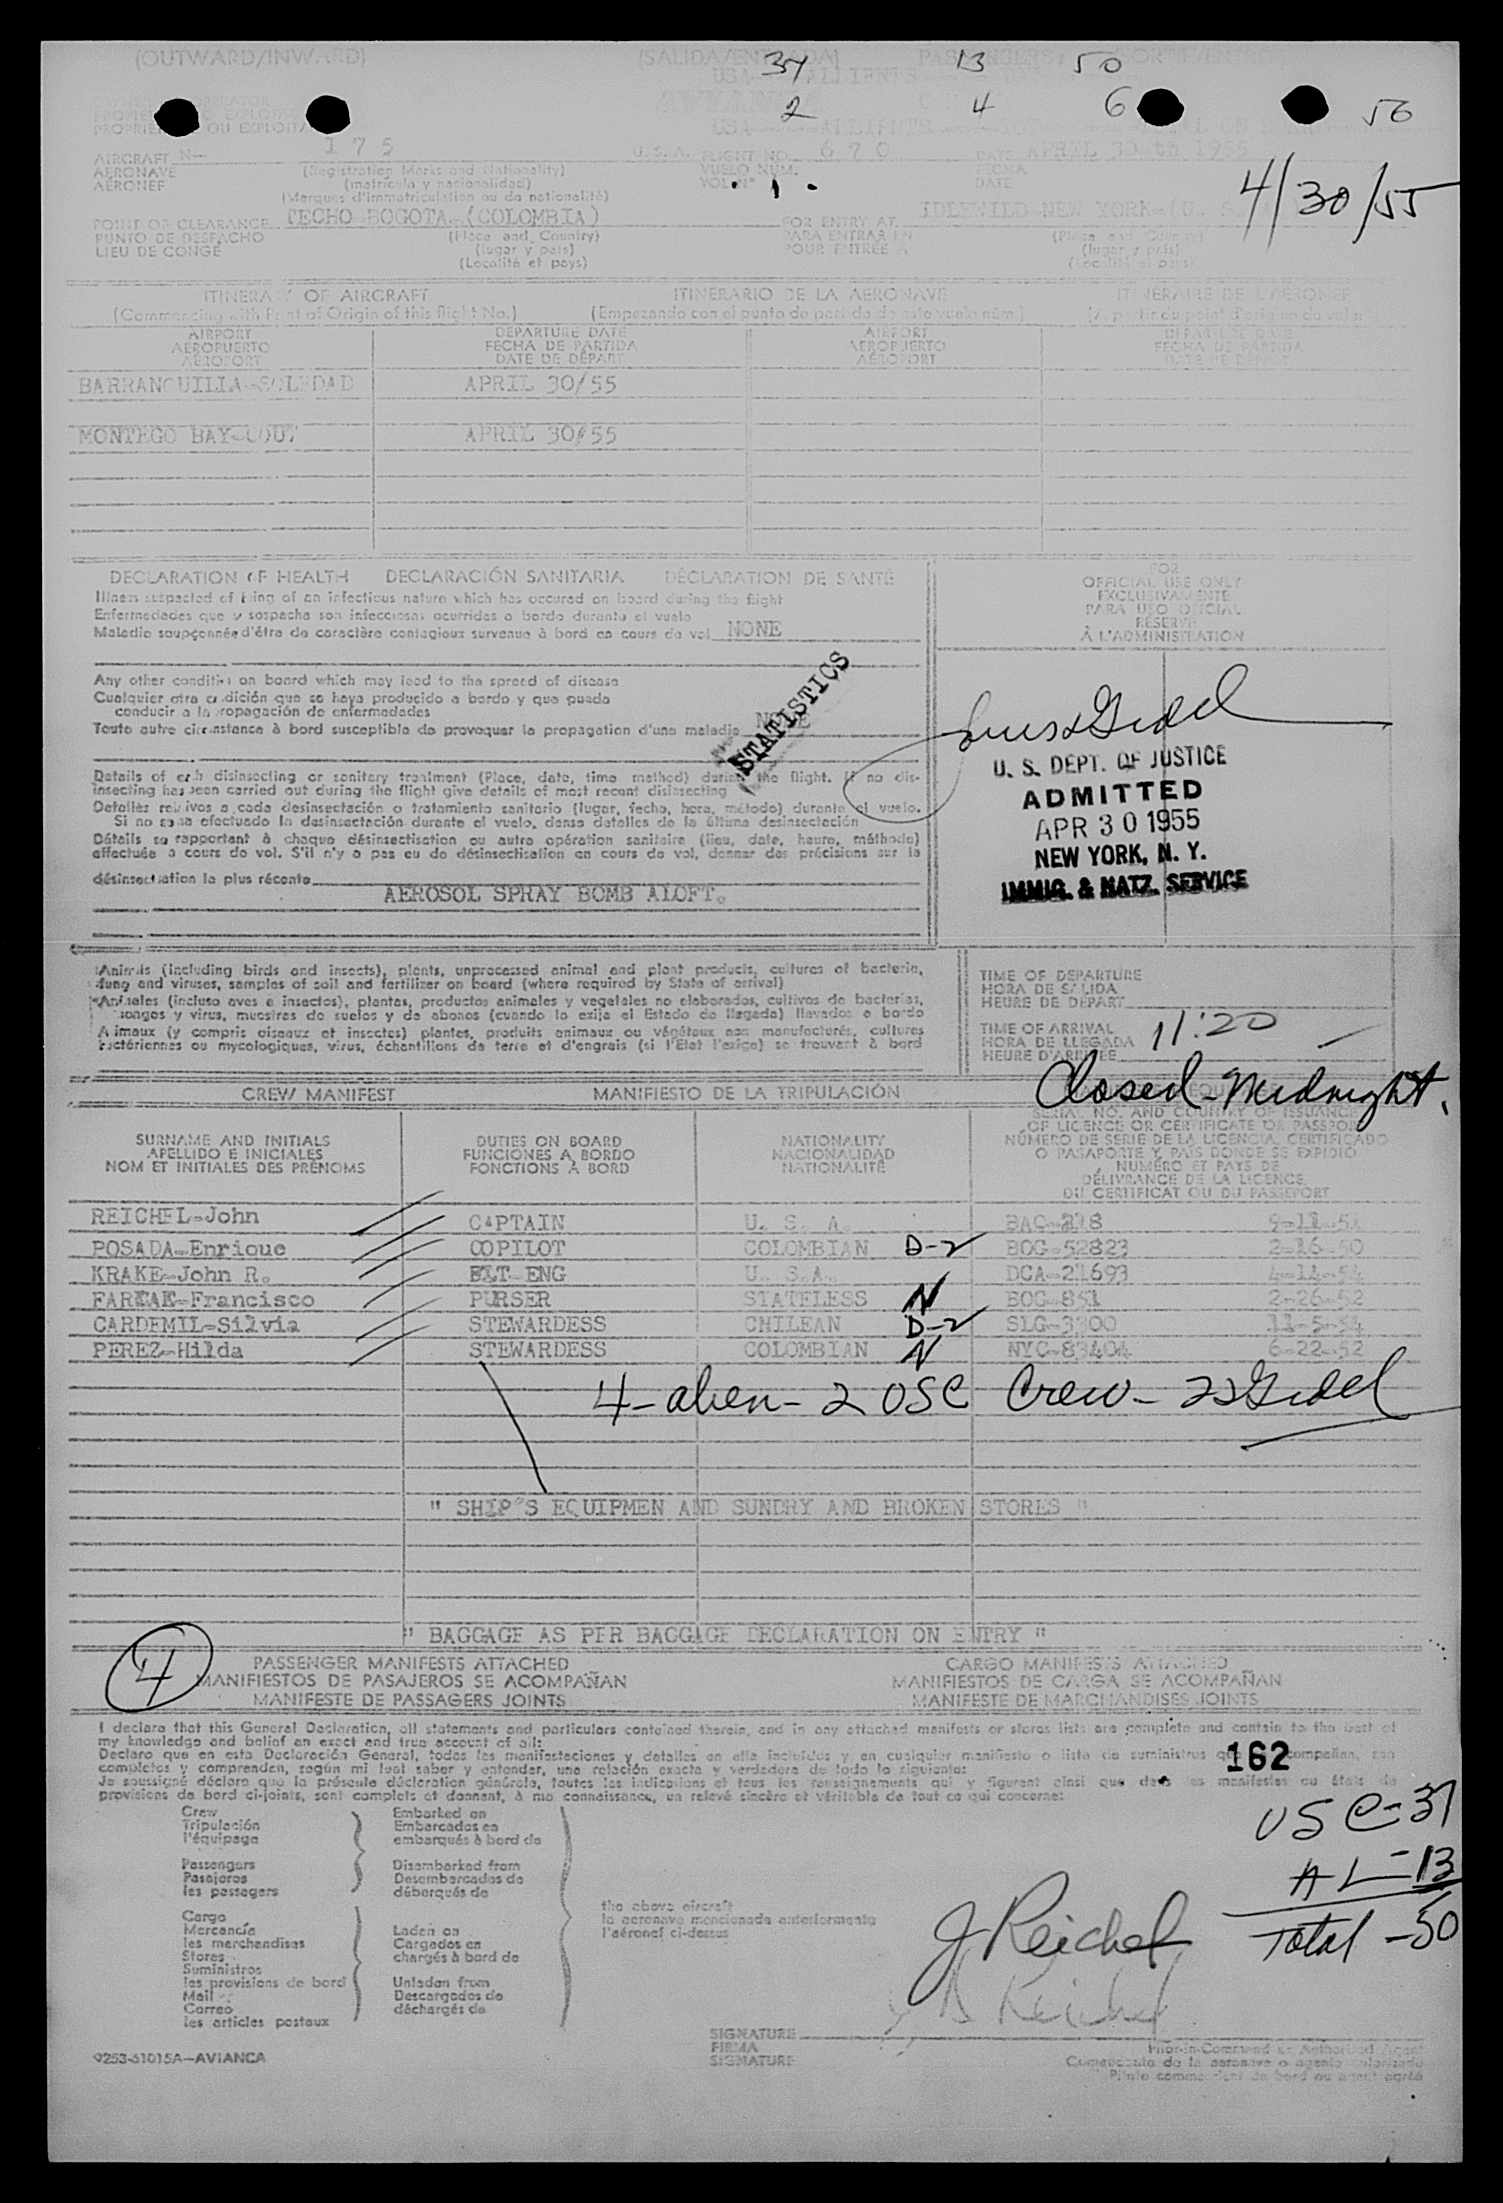 (OUTWARD/INWARD) (SALIDA/ENTRADA)
37 13 50
2 4 6 56
AIRCRAFT N- 175 U.S.A. FLIGHT NO. 670 DATE APRIL 30 th 1955
AERONAVE (Registration Marks and Nationality) VUELO NUM. FECHA
AÉRONEF (matrícula y nacionalidad) VOL N° 1 DATE
(Marques d'immatriculation ou de nationalité)
4/30/55
POINT OF CLEARANCE TECHO-BOGOTA-(COLOMBIA) FOR ENTRY AT IDLEWILD-NEW YORK-(U. S.
PUNTO DE DESPACHO (Place and Country) PARA ENTRAR EN (Place and Country)
LIEU DE CONGÉ (lugar y país) POUR ENTRÉE À (lugar y país)
(Localité et pays) (Localité et pays)
ITINERARY OF AIRCRAFT ITINERARIO DE LA AERONAVE ITINÉRAIRE DE L'AÉRONEF
(Commencing with Point of Origin of this flight No.) (Empezando con el punto de partida de este vuelo núm.)
AIRPORT DEPARTURE DATE AIRPORT DEPARTURE DATE
AEROPUERTO FECHA DE PARTIDA AEROPUERTO FECHA DE PARTIDA
AÉROPORT DATE DE DÉPART AÉROPORT DATE DE DÉPART
BARRANQUILLA-SOLEDAD APRIL 30/55
MONTEGO BAY- APRIL 30/55
DECLARATION OF HEALTH DECLARACIÓN SANITARIA DÉCLARATION DE SANTÉ
Illness suspected of being of an infectious nature which has occured on board during the flight
Enfermedades que se sospecha son infecciosas ocurridas a bordo durante el vuelo
Maladie soupçonnée d'être de caractère contagieux survenue à bord en cours de vol NONE
FOR
OFFICIAL USE ONLY
EXCLUSIVAMENTE
PARA USO OFICIAL
RÉSERVÉ
À L'ADMINISTRATION
Any other condition on board which may lead to the spread of disease
Cualquier otra condición que se haya producido a bordo y que pueda
conducir a la propagación de enfermedades
Toute autre circonstance à bord susceptible de provoquer la propagation d'une maladie NONE
STATISTICS
U. S. DEPT. OF JUSTICE
ADMITTED
APR 30 1955
NEW YORK, N. Y.
IMMIG. & NATZ. SERVICE
Details of each disinsecting or sanitary treatment (Place, date, time method) during the flight. If no dis-
insecting has been carried out during the flight give details of most recent disinsecting
Detalles relativos a cada desinsectación o tratamiento sanitario (lugar, fecha, hora, método) durante el vuelo.
Si no se ha efectuado la desinsectación durante el vuelo, dense detalles de la última desinsectación
Détails se rapportant à chaque désinsectisation ou autre opération sanitaire (lieu, date, heure, méthode)
effectuée a cours de vol. S'il n'y a pas eu de désinsectisation en cours de vol, donner des précisions sur la
désinsectisation la plus récente
AEROSOL SPRAY BOMB ALOFT.
Animals (including birds and insects), plants, unprocessed animal and plant products, cultures of bacteria,
fung and viruses, samples of soil and fertilizer on board (where required by State of arrival)
Animales (incluso aves e insectos), plantas, productos animales y vegetales no elaborados, cultivos de bacterias,
hongos y virus, muestras de suelos y de abonos (cuando lo exija el Estado de llegada) llevados a bordo
Animaux (y compris oiseaux et insectes) plantes, produits animaux ou végétaux non manufacturés, cultures
bactériennes ou mycologiques, virus, échantillons de terre et d'engrais (si l'Etat l'exige) se trouvant à bord
TIME OF DEPARTURE
HORA DE SALIDA
HEURE DE DÉPART
TIME OF ARRIVAL
HORA DE LLEGADA 11:20
HEURE D'ARRIVÉE
Closed-Midnight.
CREW MANIFEST MANIFIESTO DE LA TRIPULACIÓN
SURNAME AND INITIALS DUTIES ON BOARD NATIONALITY SERIAL NO. AND COUNTRY OF ISSUANCE
APELLIDO E INICIALES FUNCIONES A BORDO NACIONALIDAD OF LICENCE OR CERTIFICATE OR PASSPORT
NOM ET INITIALES DES PRÉNOMS FONCTIONS À BORD NATIONALITÉ NÚMERO DE SERIE DE LA LICENCIA, CERTIFICADO
O PASAPORTE Y PAÍS DONDE SE EXPIDIÓ
NUMÉRO ET PAYS DE
DÉLIVRANCE DE LA LICENCE,
DU CERTIFICAT OU DU PASSEPORT
REICHEL-John CAPTAIN U. S. A. BAC-218
POSADA-Enrique COPILOT COLOMBIAN D-2 BOG-52823 2-16-50
KRAKE-John R. FLT-ENG U. S.A. DCA-21693 4-14-54
FARKAK-Francisco PURSER STATELESS N BOG-851 2-26-52
CARDEMIL-Silvia STEWARDESS CHILEAN D-2 SLG-3300 11-5-54
PEREZ-Hilda STEWARDESS COLOMBIAN N NYC-83404 6-22-52
4-alien-2 USC Crew-
" SHIP'S EQUIPMEN AND SUNDRY AND BROKEN STORES "
" BAGGAGE AS PER BAGGAGE DECLARATION ON ENTRY "
4
PASSENGER MANIFESTS ATTACHED CARGO MANIFESTS ATTACHED
MANIFIESTOS DE PASAJEROS SE ACOMPAÑAN MANIFIESTOS DE CARGA SE ACOMPAÑAN
MANIFESTE DE PASSAGERS JOINTS MANIFESTE DE MARCHANDISES JOINTS
I declare that this General Declaration, all statements and particulars contained therein, and in any attached manifests or stores lists are complete and contain to the best of
my knowledge and belief an exact and true account of all:
Declaro que en esta Declaración General, todas las manifestaciones y detalles en ella incluídos y en cualquier manifiesto o lista de suministros que acompañan, son
completos y comprenden, según mi leal saber y entender, una relación exacta y verdadera de todo lo siguiente:
Je soussigné déclare que la présente déclaration générale, toutes les indications et tous les renseignements qui y figurent ainsi que dans les manifestes ou états de
provisions de bord ci-joints, sont complets et donnent, à ma connaissance, un relevé sincère et véritable de tout ce qui concerne:
162
Crew Embarked on
Tripulación Embarcados en
l'équipage embarqués à bord de
Passengers Disembarked from
Pasajeros Desembarcados de
les passagers débarqués de
Cargo
Mercancía Laden on
les marchandises Cargados en
Stores chargés à bord de
Suministros
les provisions de bord Unladen from
Mail Descargados de
Correo déchargés de
les articles postaux
the above aircraft
la aeronave mencionada anteriormente
l'aéronef ci-dessus
USC-37
AL-13
Total -50
J Reichel
J Reichel
SIGNATURE
FIRMA
SIGNATURE
Pilot-in-Command or Authorized Agent
Comandante de la aeronave o agente autorizado
Pilote commandant de bord ou agent agréé
9253-51015A—AVIANCA